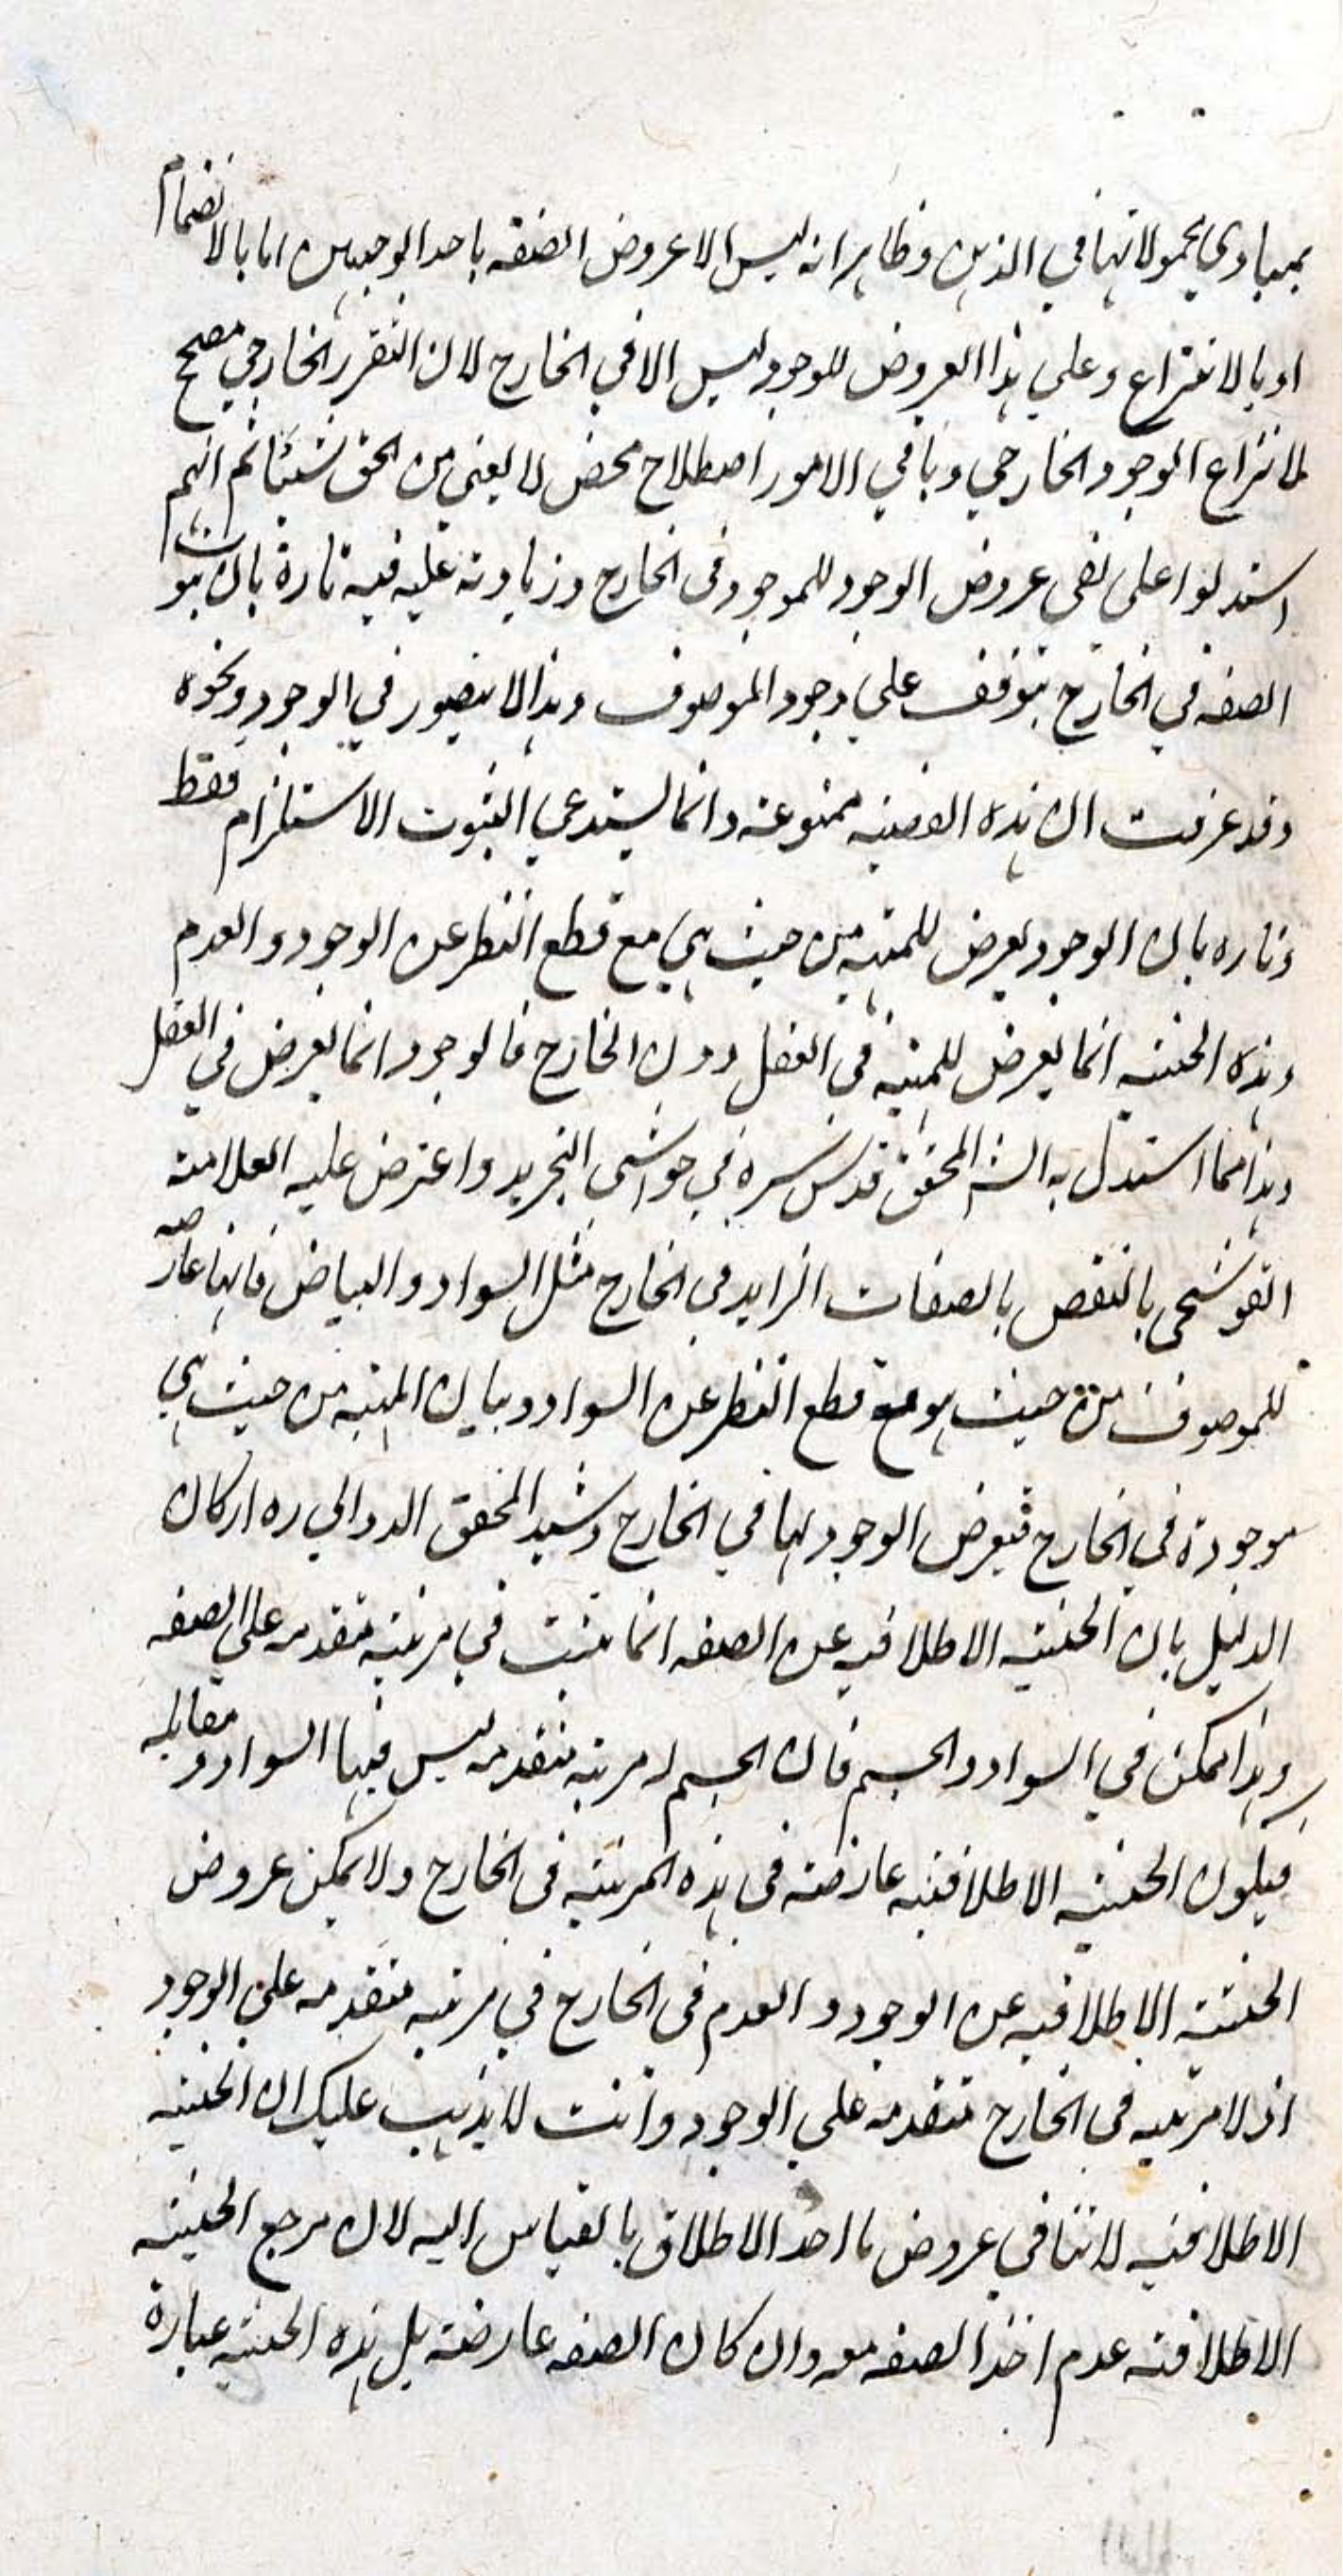 بمبادي محمولاتها في الذهن وظاهر انه ليس الا عروض الصفة باحد الوجهين اما بالانضمام
او بالانتزاع وعلي هذا العروض للوجود ليس الا في الخارج لان التقرر الخارجي مصحح
لانتزاع الوجود الخارجي وباقي الامور اصطلاح محض لا يغني من الحق شيئا ثم انهم
استدلوا على نفى عروض الوجود للموجود فى الخارج وزيادته عليه فيه تارة بان ثبوت
الصفة في الخارج يتوقف علي وجود الموصوف وهذا لا يتصور في الوجود ونحوه
وقد عرفت ان هذه القضية ممنوعة وانما يستدعي الثبوت الاستلزام فقط
وتاره بان الوجود يعرض للمهية من حيث هي مع قطع النظر عن الوجود والعدم
وهذه الحيثية انما يعرض للمهية في العقل دون الخارج فالوجود انما يعرض في العقل
وهذا مما استدل به الش المحقق قدس سره في حواشى التجريد واعترض عليه العلامة
القوشجى بالنقض بالصفات الزايده في الخارج مثل السواد والبياض فانها عارضه
للموصوف من حيث هو مع قطع النظر عن السواد وبان المهية من حيث هي
موجودة في الخارج فيعرض الوجود لها في الخارج وشيد المحقق الدوالي ره اركان
الدليل بان الحيثية الاطلاقيه عن الصفه انما تثبت في مرتبة متقدمه علي الصفه
وهذا ممكن في السواد والجسم فان الجسم له مرتبه متقدمه ليس فيها السواد و مقابله
فيكون الحيثية الاطلاقية عارضة في هذه المرتبة في الخارج ولا يمكن عروض
الحيثية الاطلاقيه عن الوجود والعدم في الخارج في مرتبه متقدمه علي الوجود
اذ لا مرتبه في الخارج متقدمة علي الوجود وانت لا يذهب عليك ان الحيثية
الاطلاقية لا تنافي عروض ما اخذ الاطلاق بالقياس اليه لان مرجع الحيثية
الاطلاقية عدم اخذ الصفه معه وان كان الصفه عارضة بل هذه الحيثية عبارة